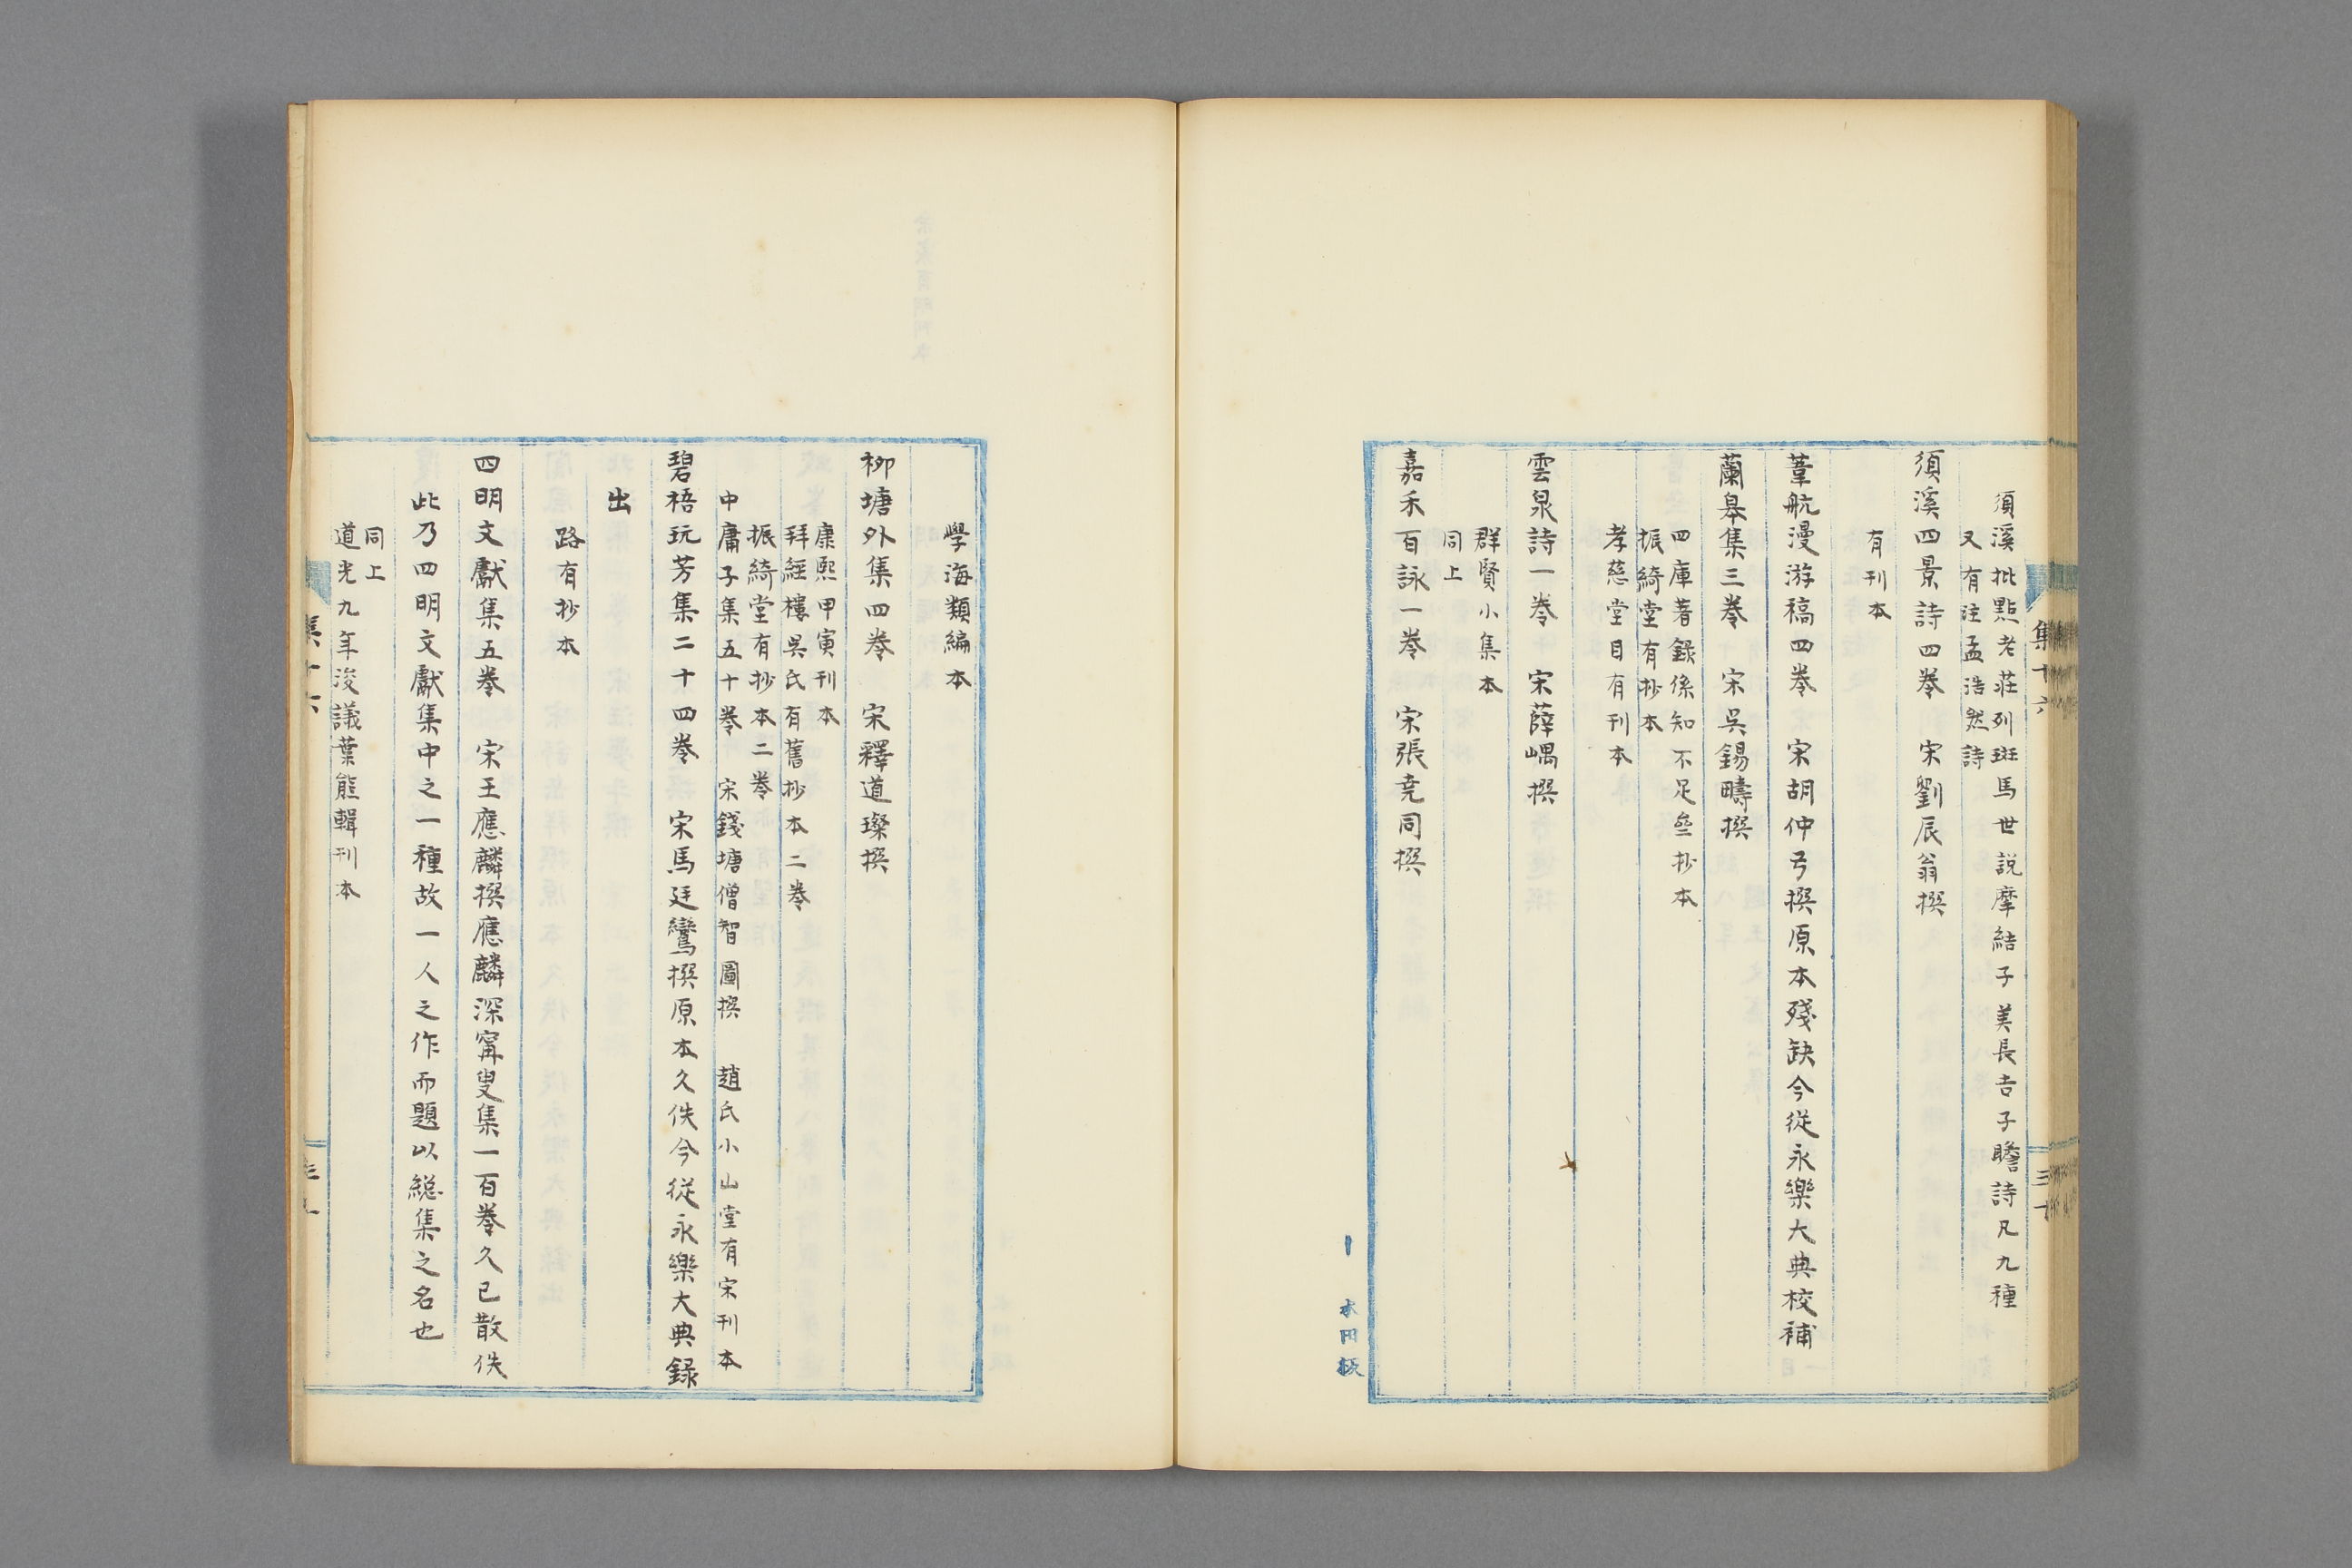 須溪批點老莊列班馬世説摩結子美長吉子瞻詩凡九種
又有注孟浩然詩
須溪四景詩四卷　宋劉辰翁撰
有刊本
葦航漫游稿四卷　宋胡仲弓撰原本殘缺今從永樂大典校補
蘭皋集三卷　宋吳錫疇撰
四庫著錄係知不足叄抄本
振綺堂有抄本
孝慈堂目有刊本
雲泉詩一卷　宋薛嵎撰
群賢小集本
同上
嘉禾百詠一卷　宋張尭同撰
本円板
學海類編本
柳塘外集四卷　宋釋道璨撰
康熙甲寅刊本
拜經樓吳氏有舊抄本二卷
振綺堂有抄本二卷
中庸子集五十卷　宋錢塘僧智圓撰　趙氏小山堂有宋刊本
碧梧玩芳集二十四卷　宋馬廷鸞撰原本久佚今從永樂大典録
出
路有抄本
四明文獻集五卷　宋王應麟撰應麟深寧叟集一百卷久已散佚
此乃四明文獻集中之一種故一人之作而題以總集之名也
同上
道光九年浚議葉熊輯刊本
集十六